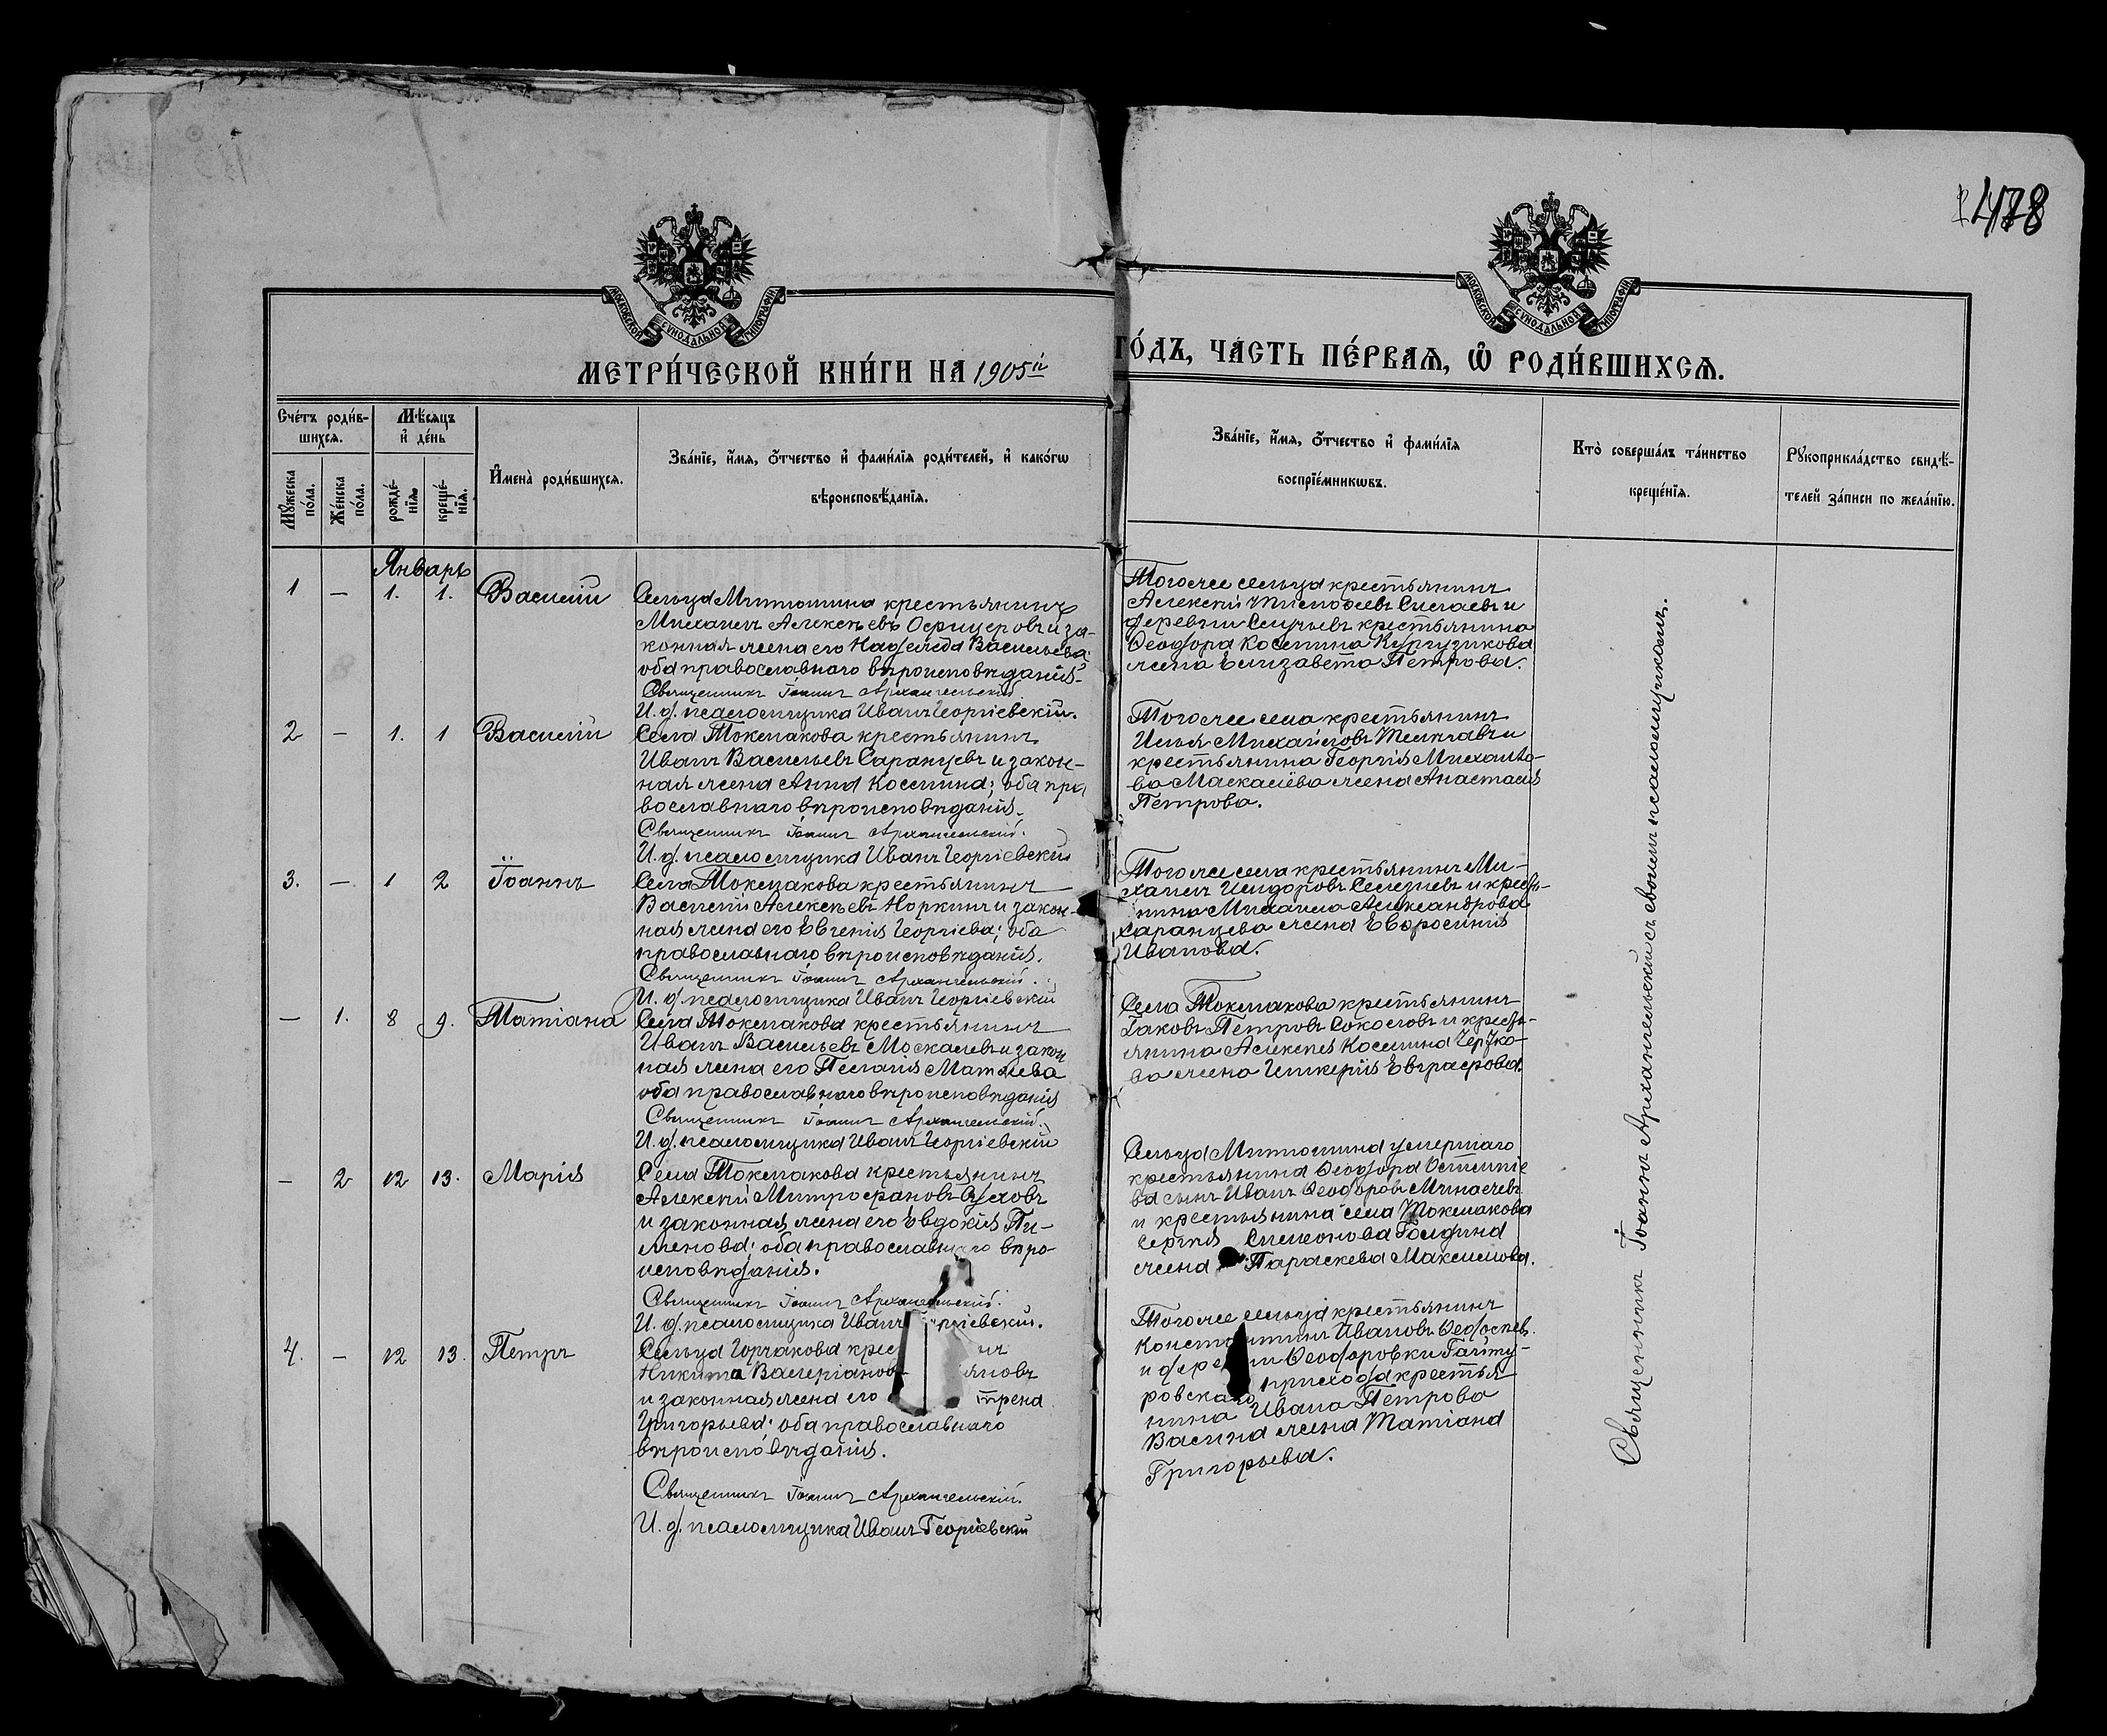 478
МОСКОВСКОЙ СУНОДАЛЬНОЙ ТИПОГРАФІИ
МОСКОВСКОЙ СУНОДАЛЬНОЙ ТИПОГРАФІИ
МЕТРИ́ЧЕСКОЙ КНИ́ГИ НА 1905й ГО́ДЪ, ЧА́СТЬ ПЕ́РВАѦ, Ѽ РОДИ́ВШИХСѦ.
Сче́тъ роди́в-
шихсѧ.
Мꙋ́жеска по́ла.
Же́нска по́ла.
Мѣ́сѧцъ
и҆ де́нь
рожде́-
нїѧ.
креще́-
нїѧ.
И҆мена̀ роди́вшихсѧ.
Зва́нїе, и҆́мѧ, ѻ҆́тчество и҆ фами́лїѧ роди́телей, и҆ како́гѡ
вѣроисповѣ́данїѧ.
Зва́нїе, и҆́мѧ, ѻ҆́тчество и҆ фами́лїѧ
воспрїе́мникѡвъ.
Кто̀ соверша́лъ та́инство
креще́нїѧ.
Рꙋкоприкла́дство свидѣ́-
телей за́писи по жела́нїю.
Январь
1 — 1. 1. Василій
Сельца Митюшина крестьянинъ
Михаилъ Алексѣевъ Офицеровъ и за-
конная жена его Надежда Васильева;
оба православнаго вѣроисповѣданія.
Священникъ Іоаннъ Архангельскій.
И. д. псаломщика Иванъ Георгіевскій.
Тогоже сельца крестьянинъ
Алексѣй
деревни крестьянина
Ѳеодора Косьмина
жена Елизавета Петрова.
2 — 1. 1 Василій
Села Токмакова крестьянинъ
Иванъ Васильевъ Саранцевъ и закон-
ная жена Анна Космина; оба пра
вославнаго вѣроисповѣданія.
Священникъ Іоаннъ Архангельскій.
И. д. псаломщика Иванъ Георгіевскій
Тогоже села крестьянинъ
Илья Михайловъ и
крестьянина Георгія Михайло-
ва жена Анастасія
Петрова.
3. — 1 2 Іоаннъ
Села Токмакова крестьянинъ
Василій Алексѣевъ Норкинъ и закон-
ная жена его Евгенія Георгіева; оба
православнаго вѣроисповѣданія.
Священникъ Іоаннъ Архангельскій.
И. д. псаломщика Иванъ Георгіевскій
Тогоже села крестьянинъ Ми-
хаилъ Исидоровъ Селезневъ и кресть-
нина Михаила Александрова
Саранцева жена Евфросинія
Иванова.
— 1. 8 9. Татіана
Села Токмакова крестьянинъ
Иванъ Васильевъ Москалевъ и закон
ная жена его Пелагія Матѳіева
оба православнаго вѣроисповѣданія
Священникъ Іоаннъ Архангельскій.
И. д. псаломщика Иванъ Георгіевскій
Села Токмакова крестьянинъ
Іаковъ Петровъ Соколовъ и кресть-
янина Алексѣя Космина
ва жена Гликерія Евграфова.
— 2 12 13. Марія
Села Токмакова крестьянинъ
Алексѣй Митрофановъ
и законная жена его Евдокія Пи-
менова; оба православнаго вѣро-
исповѣданія.
Священникъ Іоаннъ Архангельскій.
И. д. псаломщика Иванъ ргіевскій.
Сельца Митюшина умершаго
крестьянина Ѳеодора
ва сынъ Иванъ Ѳеодоровъ
и крестьянина села Токмакова
Сергѣя Симеонова
жена Параскева Максимова.
4. — 12 13. Петръ
Сельца Горчакова крес нъ
Никита Валеріановъ яновъ
и законная жена его трена
Григорьева; оба православнаго
вѣроисповѣданія.
Священникъ Іоаннъ Архангельскій.
И. д. псаломщика Иванъ Георгіевскій
Тогоже сельца крестьянинъ
Константинъ Ивановъ
и деревни Ѳеодоровки
ровскаго прихода крестья-
нина Ивана Петрова
Васина жена Татіана
Григорьева.
Священникъ Іоаннъ Архангельскій съ своимъ псаломщикомъ.